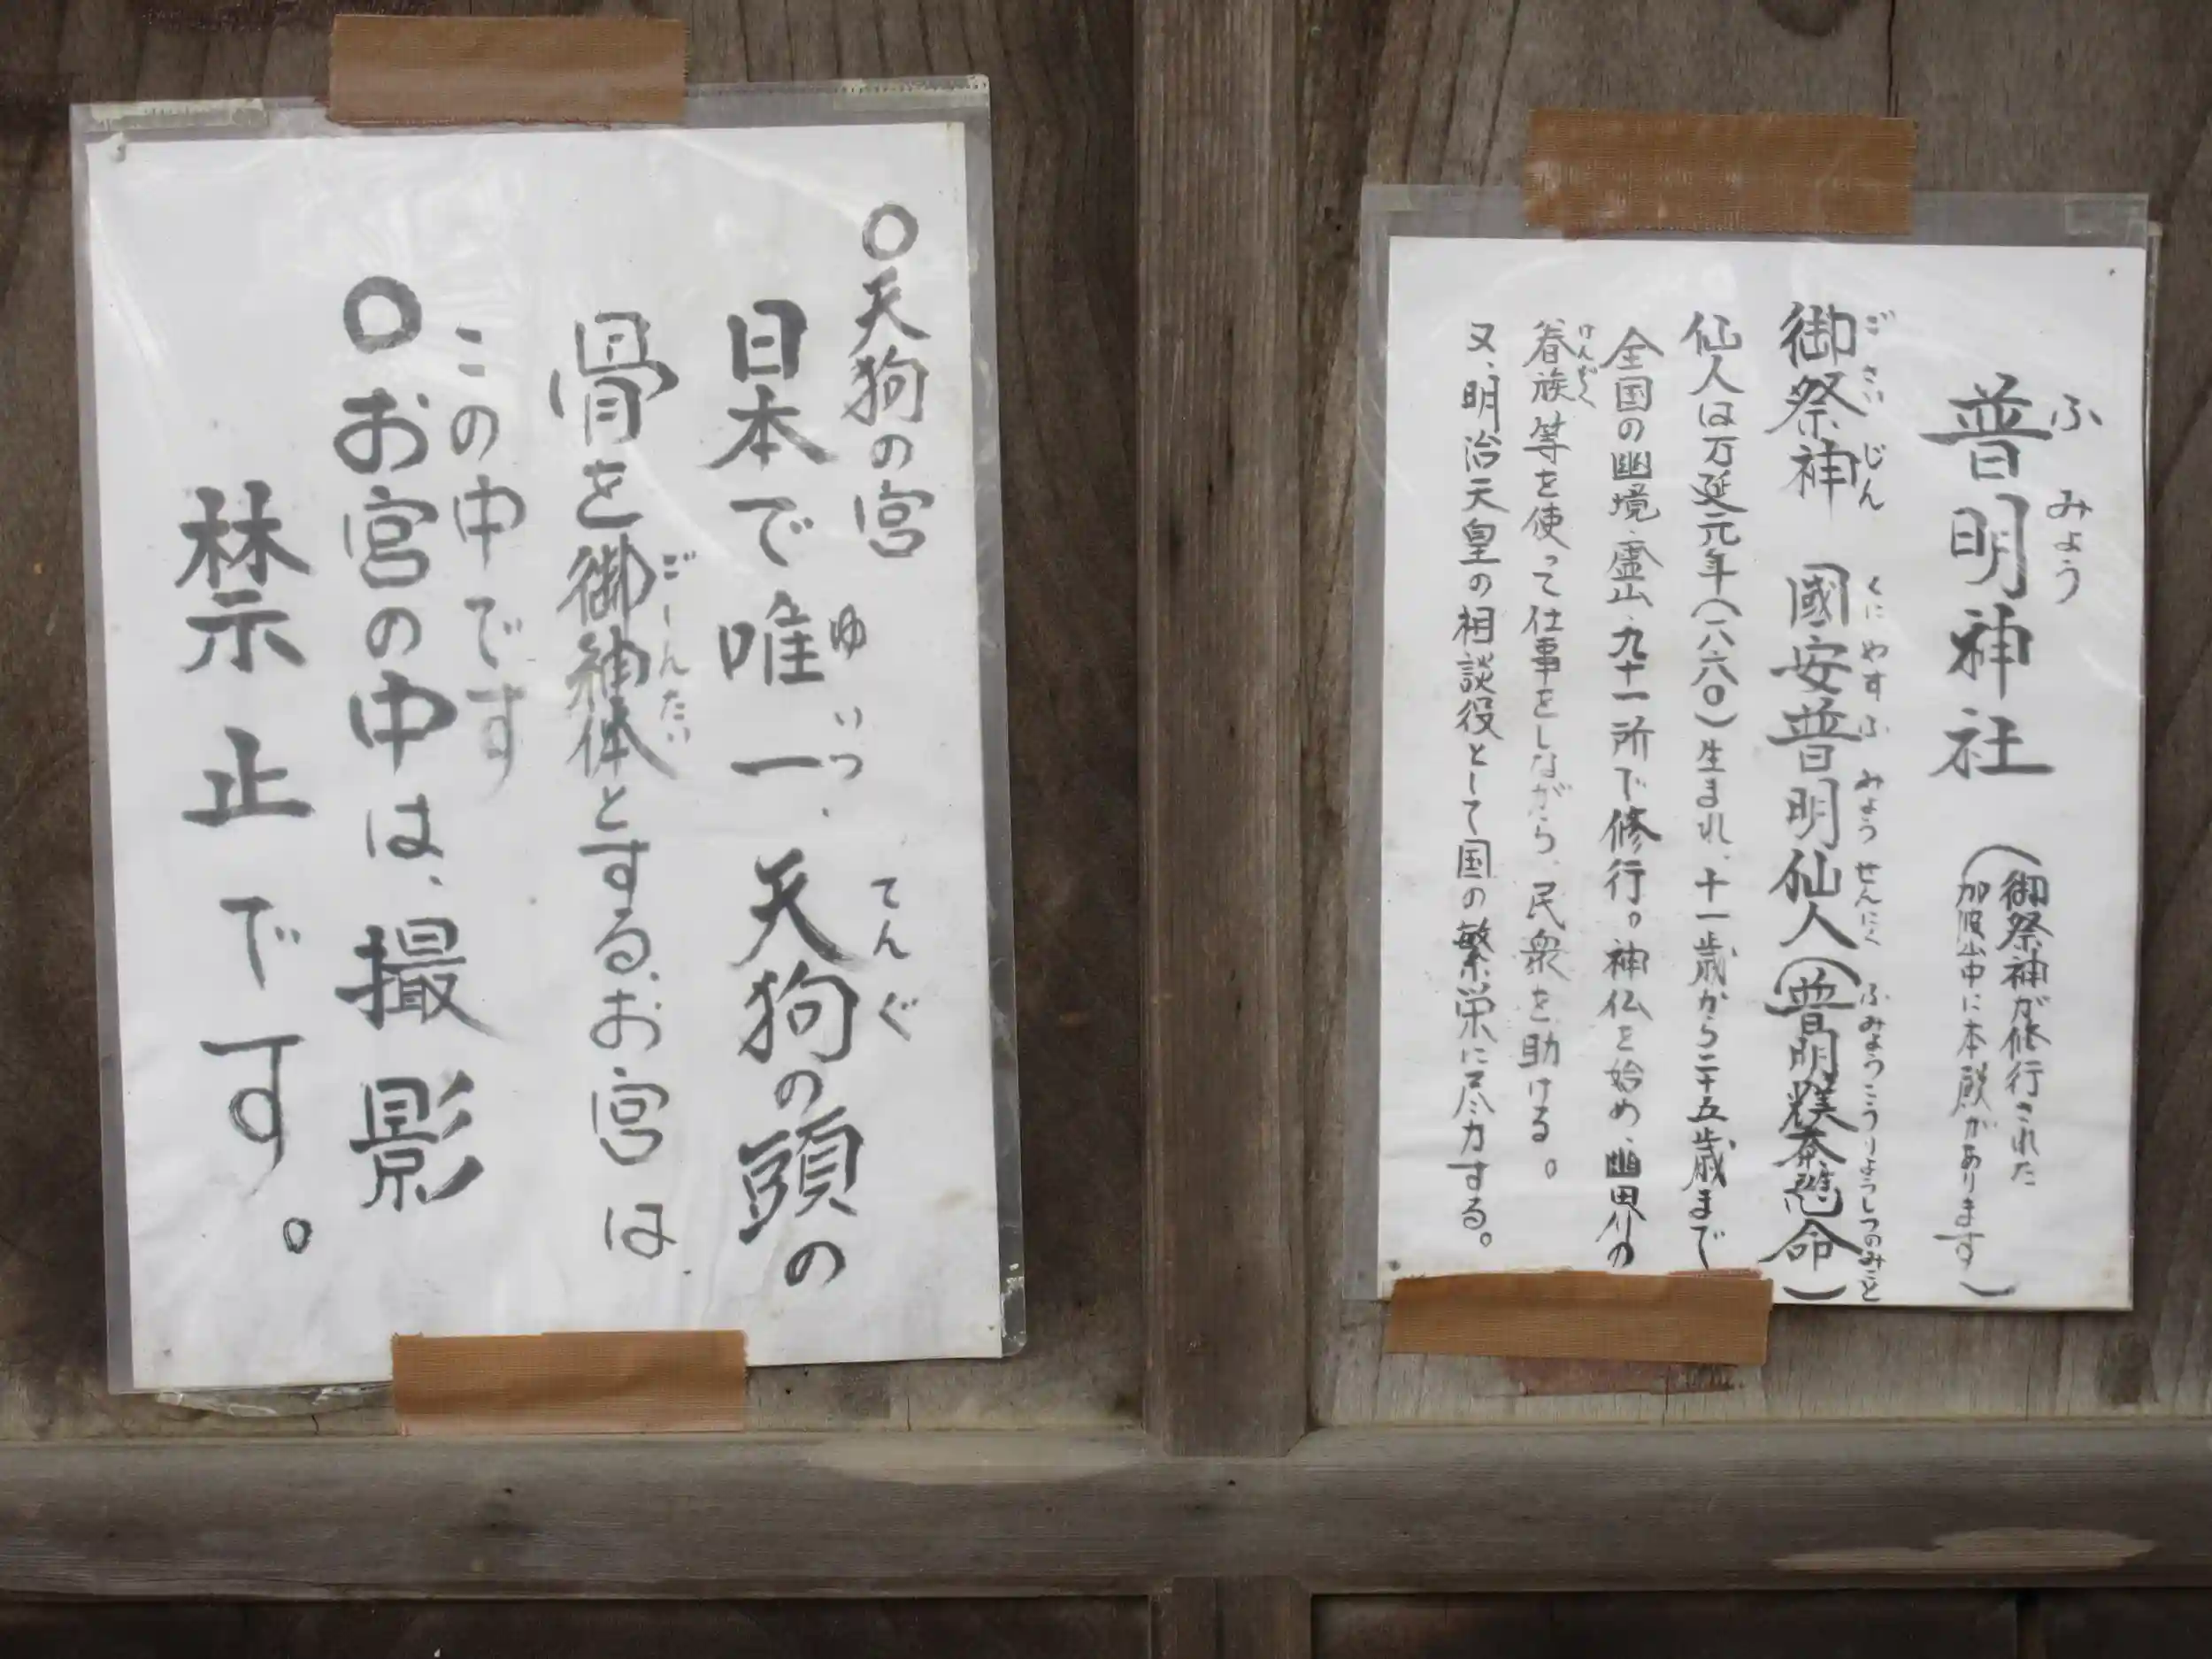 ○天狗の宮
日本で唯一、天狗の頭の
ゆいつ
てんぐ
骨を御神体とする、お宮は
ごしんたい
この中です
○お宮の中は、撮影
禁止です。
普明神社
ふみょう
(御祭神が修行された
加波山中に本殿があります)
御祭神 國安普明仙人(普明
ごさいじん
くにやすふみょうせんにん
命)
仙人は万延元年(一八六〇)生まれ、十一歳から二十五歳まで
全国の幽境、霊山、九十一所で修行。神仏を始め、幽界の
眷族等を使って仕事をしながら、民衆を助ける。
けんぞく
又、明治天皇の相談役として国の繁栄に尽力する。